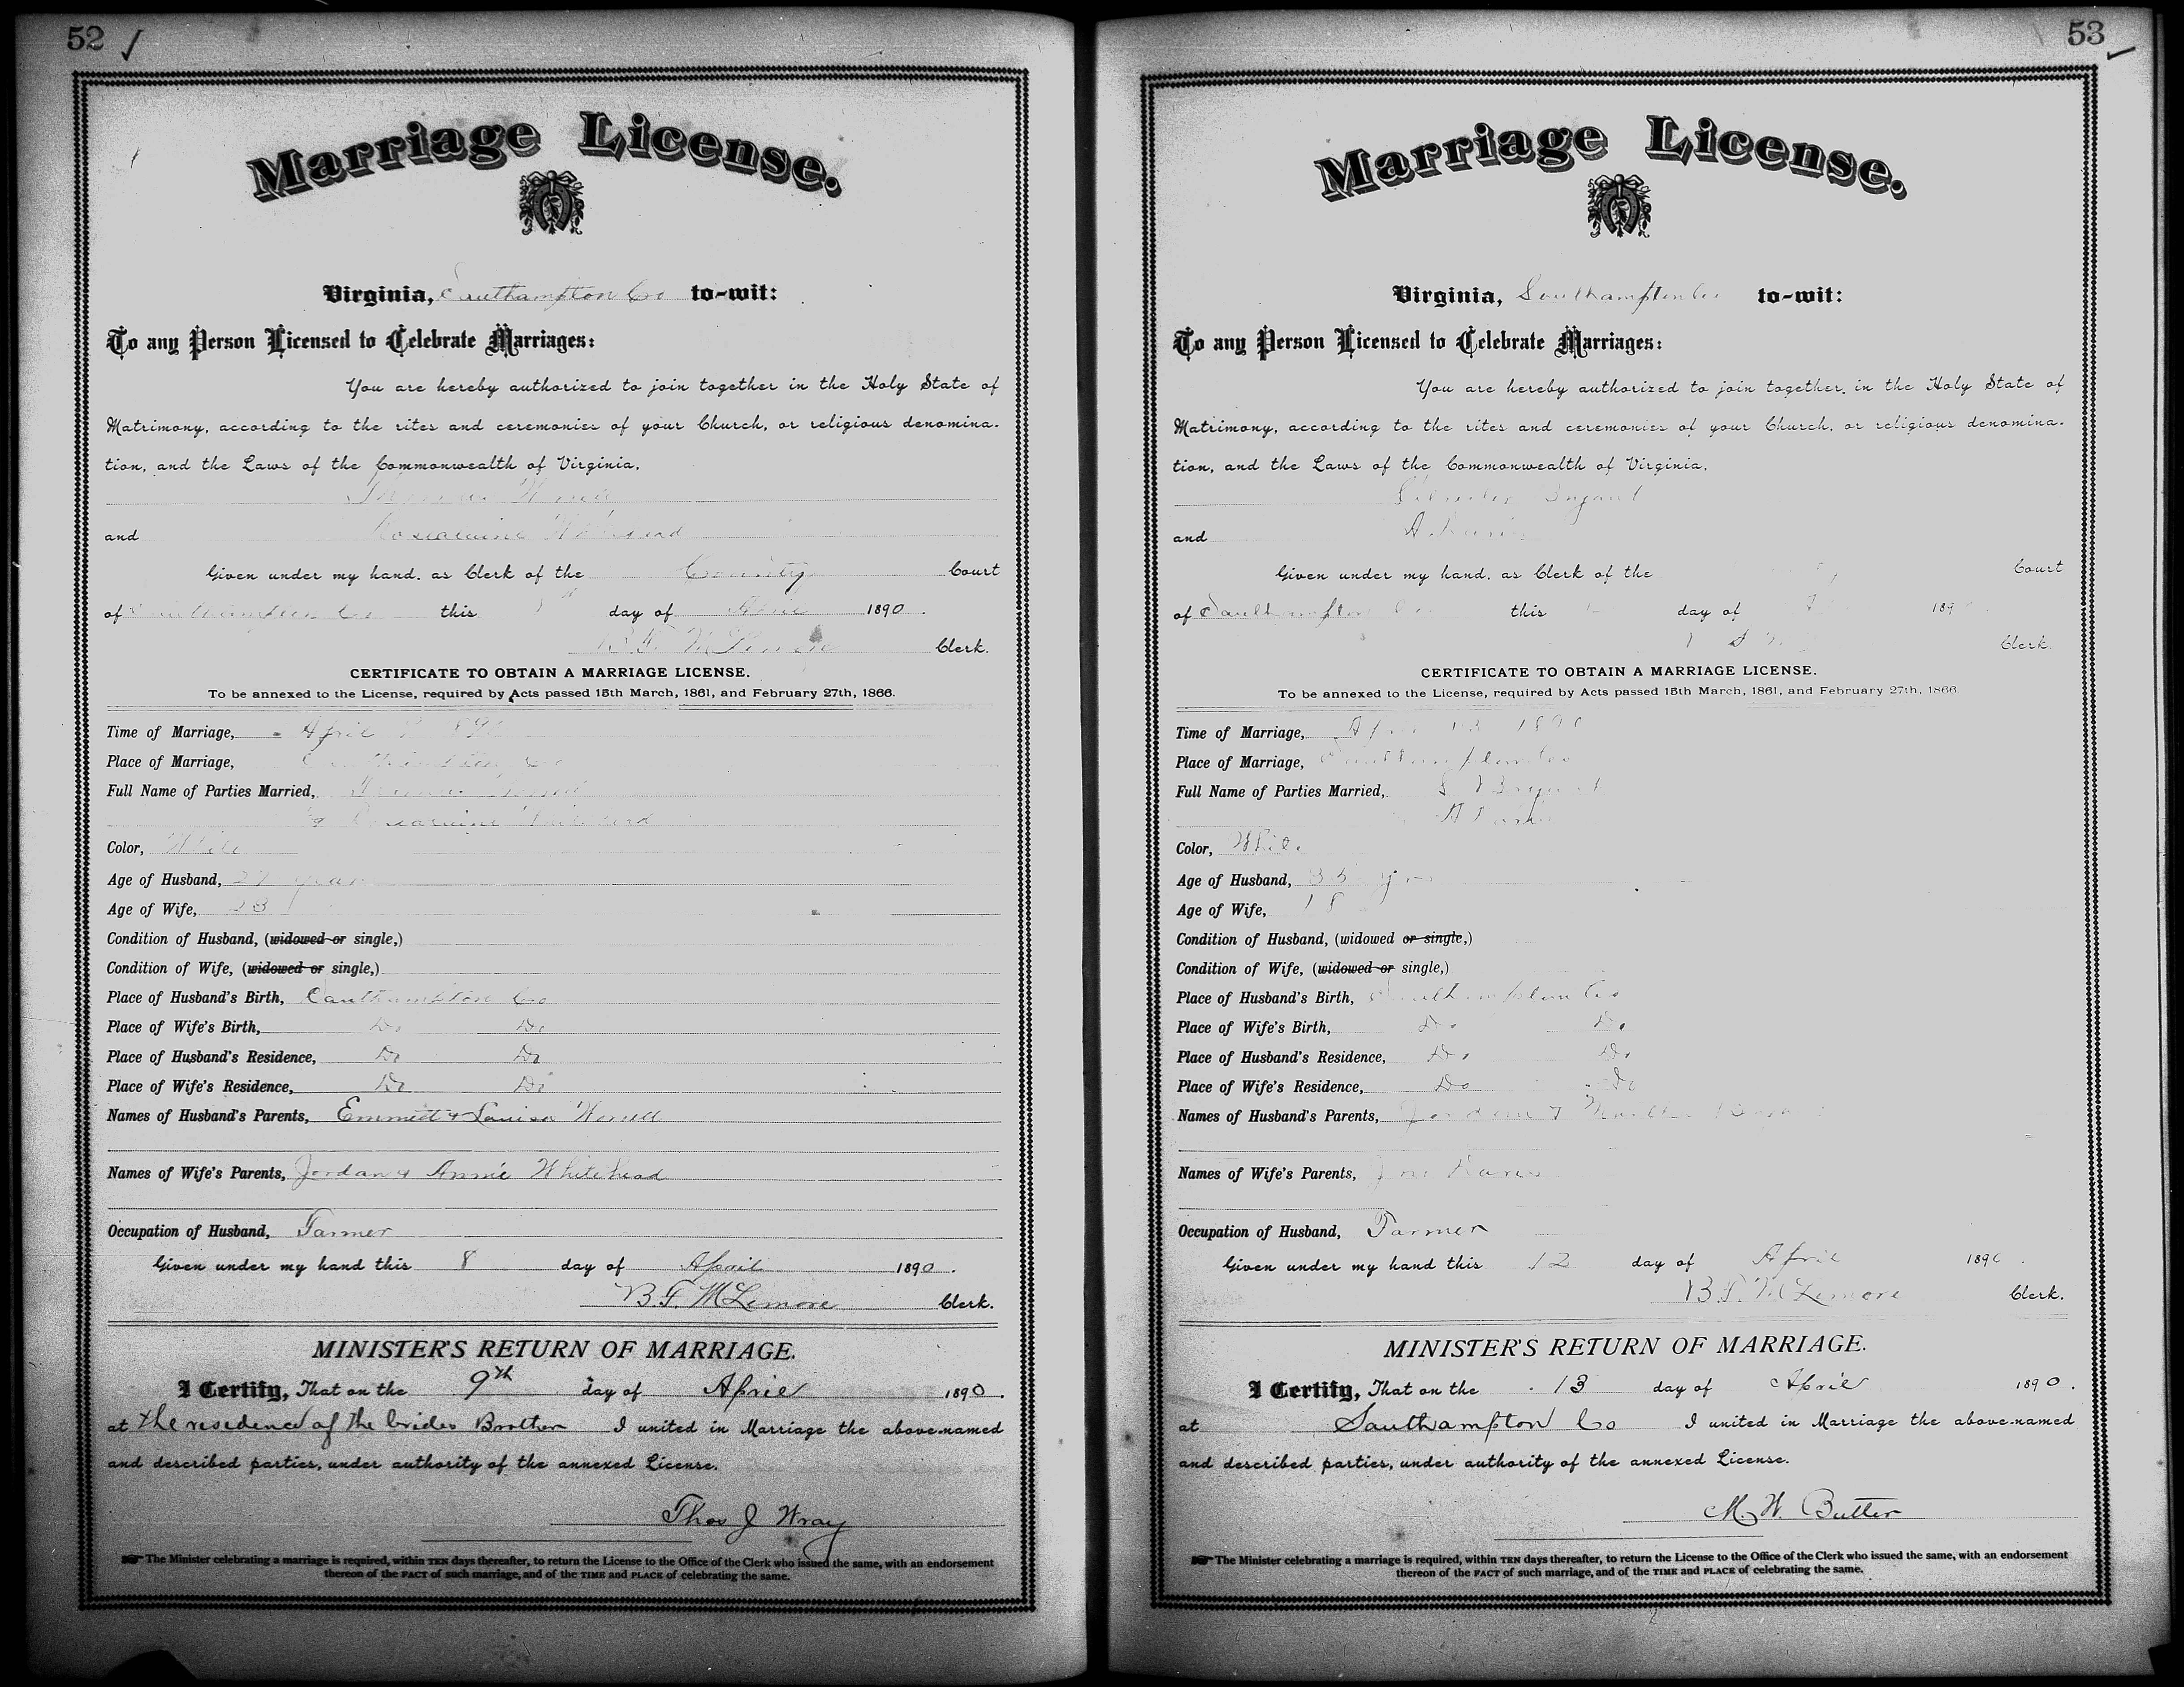 52
Marriage License.
Virginia, Southampton Co to-wit:
To any Person Licensed to Celebrate Marriages:
You are hereby authorized to join together in the Holy State of
Matrimony, according to the rites and ceremonies of your Church, or religious denomina-
tion, and the Laws of the Commonwealth of Virginia,
and
Given under my hand, as Clerk of the County Court
of Southampton Co this day of April 1890.
Clerk.
CERTIFICATE TO OBTAIN A MARRIAGE LICENSE.
To be annexed to the License, required by Acts passed 15th March, 1861, and February 27th, 1866.
Time of Marriage, April
Place of Marriage, Southampton Co
Full Name of Parties Married,
Color, White
Age of Husband, 27 years
Age of Wife, 23
Condition of Husband, (widowed or single,)
Condition of Wife, (widowed or single,)
Place of Husband's Birth, Southampton Co
Place of Wife's Birth, Do Do
Place of Husband's Residence, Do Do
Place of Wife's Residence, Do Do
Names of Husband's Parents, Emmett & Louisa Worrell
Names of Wife's Parents, Jordan & Annie Whitehead
Occupation of Husband, Farmer
Given under my hand this 8 day of April 1890.
B.F. McLemore Clerk.
MINISTER'S RETURN OF MARRIAGE.
I Certify, That on the 9th day of April 1890.
at the residence of the brides Brother I united in Marriage the above-named
and described parties, under authority of the annexed License.
Thos J Wray
The Minister celebrating a marriage is required, within TEN days thereafter, to return the License to the Office of the Clerk who issued the same, with an endorsement
thereon of the FACT of such marriage, and of the TIME and PLACE of celebrating the same.
53
Marriage License.
Virginia, Southampton Co to-wit:
To any Person Licensed to Celebrate Marriages:
You are hereby authorized to join together in the Holy State of
Matrimony, according to the rites and ceremonies of your Church, or religious denomina-
tion, and the Laws of the Commonwealth of Virginia,
Bryant
and
Given under my hand, as Clerk of the Court
of Southampton Co this day of 189
Clerk.
CERTIFICATE TO OBTAIN A MARRIAGE LICENSE.
To be annexed to the License, required by Acts passed 15th March, 1861, and February 27th, 1866.
Time of Marriage, April 13 1890
Place of Marriage, Southampton Co
Full Name of Parties Married, Bryant
Color, White
Age of Husband,
Age of Wife, 18
Condition of Husband, (widowed or single,)
Condition of Wife, (widowed or single,)
Place of Husband's Birth, Southampton Co
Place of Wife's Birth, Do Do
Place of Husband's Residence, Do Do
Place of Wife's Residence, Do Do
Names of Husband's Parents, Jordan &
Names of Wife's Parents,
Occupation of Husband, Farmer
Given under my hand this 12 day of April 1890.
B.F. McLemore Clerk.
MINISTER'S RETURN OF MARRIAGE.
I Certify, That on the 13 day of April 1890.
at Southampton Co I united in Marriage the above-named
and described parties, under authority of the annexed License.
M. W. Butler
The Minister celebrating a marriage is required, within TEN days thereafter, to return the License to the Office of the Clerk who issued the same, with an endorsement
thereon of the FACT of such marriage, and of the TIME and PLACE of celebrating the same.